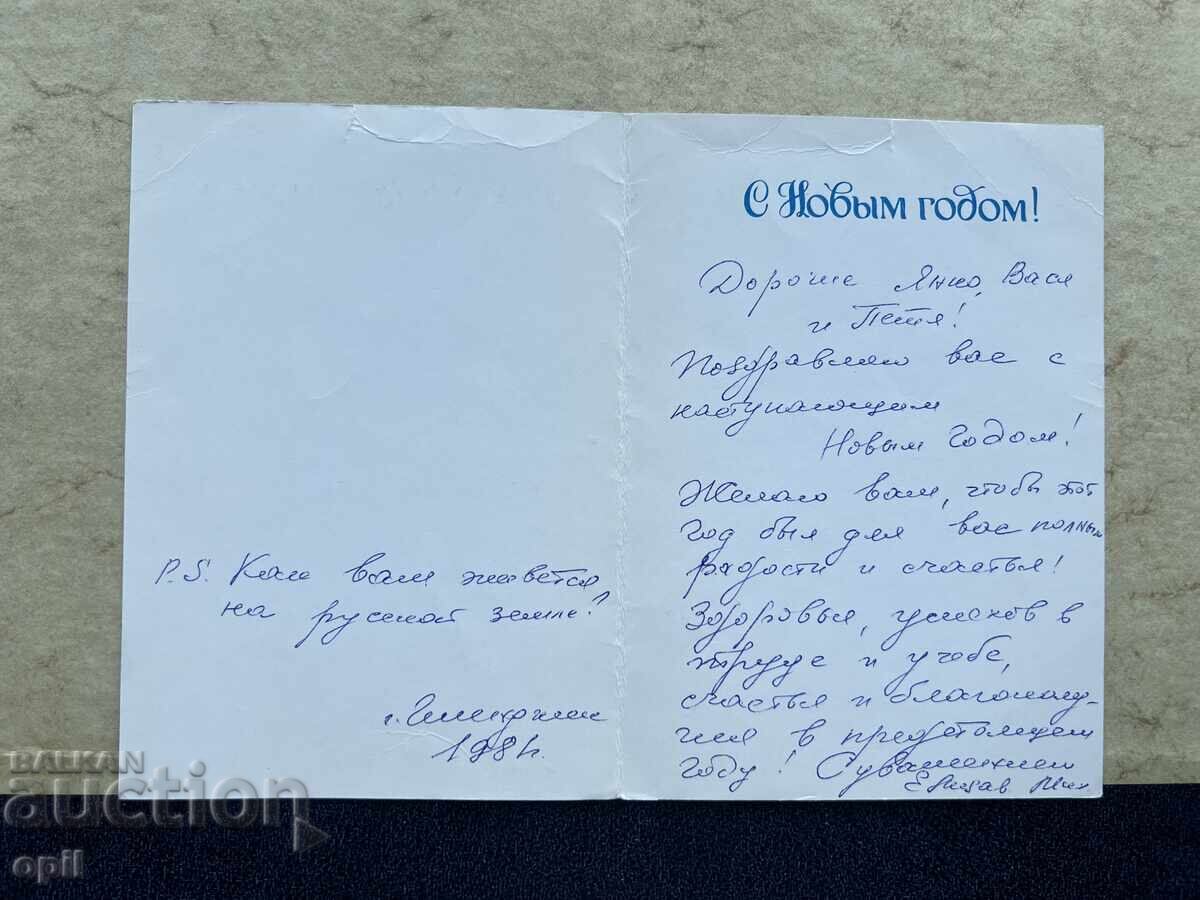 P.S. Как вам живется
на русской земле?
1981г.
С Новым годом!
Дорогие Янко, Вася
и Петя!
Поздравляю вас с
наступающим
Новым Годом!
Желаю вам, чтобы этот
год был для вас полным
радости и счастья!
Здоровья, успехов в
труде и учебе,
счастья и благополу-
чия в предстоящем
году! С уважением
BALKAN
auction
opil